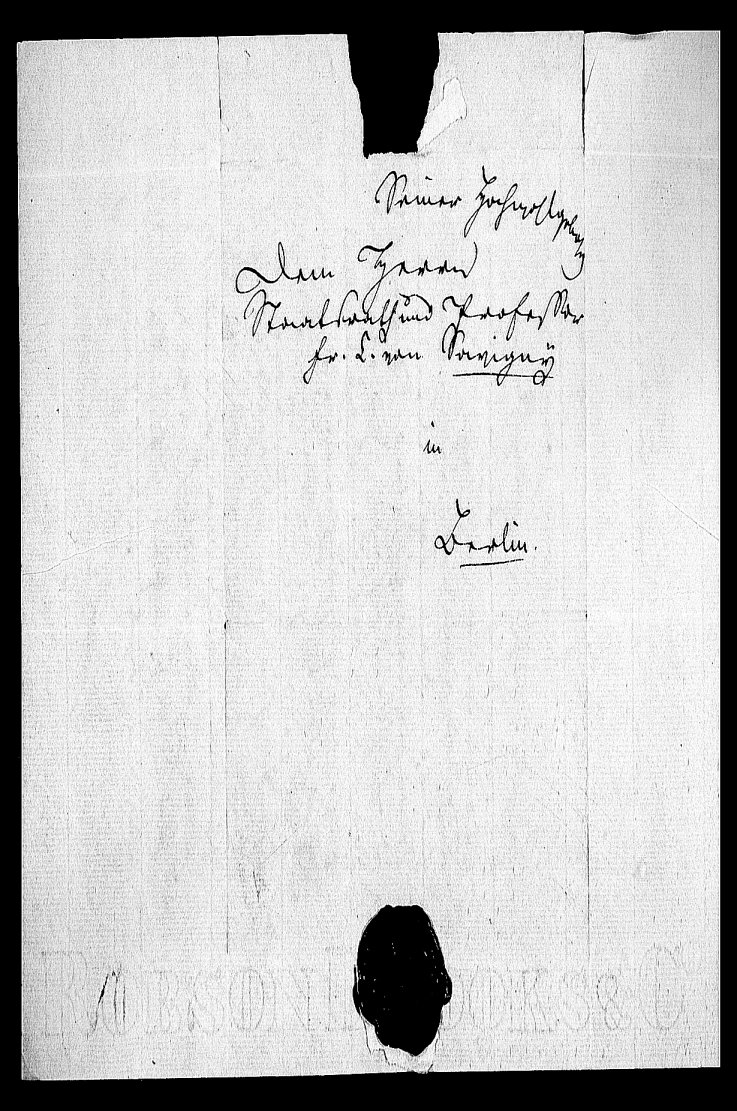 Seiner Hochwohlgeb.
Dem Herrn
Staatsrath und Professor
Fr. C. von Savigny
in
Berlin.